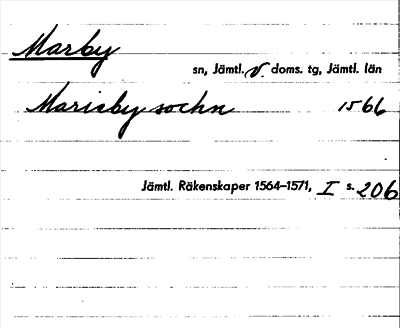 Marby
sn, Jämtl. V. doms. tg, Jämtl. län
Marieby sochn 1566
Jämtl. Räkenskaper 1564–1571, I s. 206